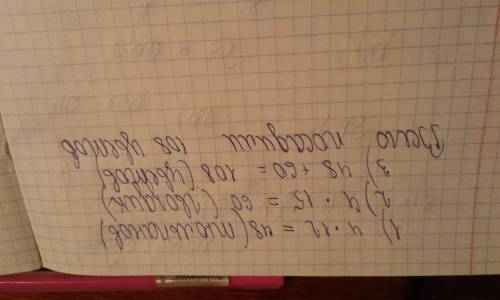 1) 4 · 12 = 48 (тюльпанов)
2) 4 · 15 = 60 (гвоздик)
3) 48 + 60 = 108 (цветков)
Всего посадили 108 цветков